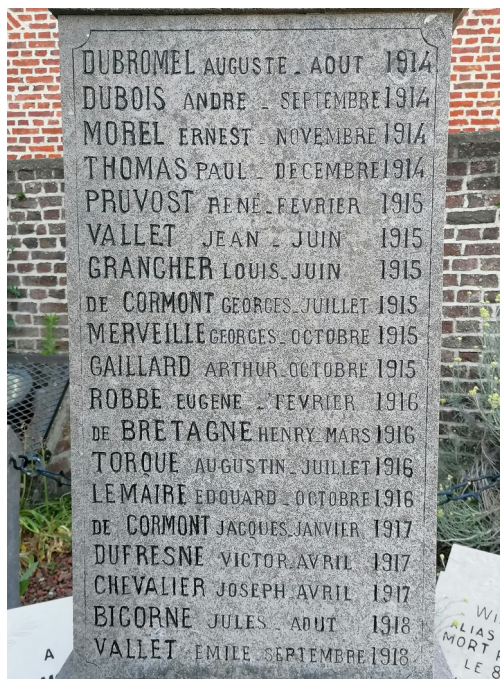 DUBROMEL AUGUSTE_ AOUT 1914
DUBOIS ANDRE _ SEPTEMBRE 1914
MOREL ERNEST_ NOVEMBRE 1914
THOMAS PAUL_ DECEMBRE 1914
PRUVOST RENE_FEVRIER 1915
VALLET JEAN _ JUIN 1915
GRANCHER LOUIS_JUIN 1915
DE CORMONT GEORGES_JUILLET 1915
MERVEILLE GEORGES_OCTOBRE 1915
GAILLARD ARTHUR_OCTOBRE 1915
ROBBE EUGENE _ FEVRIER 1916
DE BRETAGNE HENRY_MARS 1916
TORQUE AUGUSTIN_JUILLET 1916
LEMAIRE EDOUARD_OCTOBRE 1916
DE CORMONT JACQUES_JANVIER 1917
DUFRESNE VICTOR_AVRIL 1917
CHEVALIER JOSEPH_AVRIL 1917
BIGORNE JULES_ AOUT 1918
VALLET EMILE_SEPTEMBRE 1918
A
WI
ALIAS
MORT
LE 8